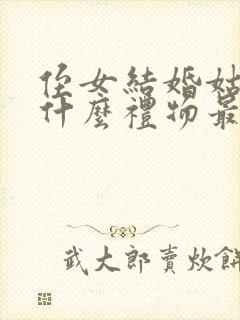 侄女結婚姑
什麼禮物最
武大郎賣炊餅